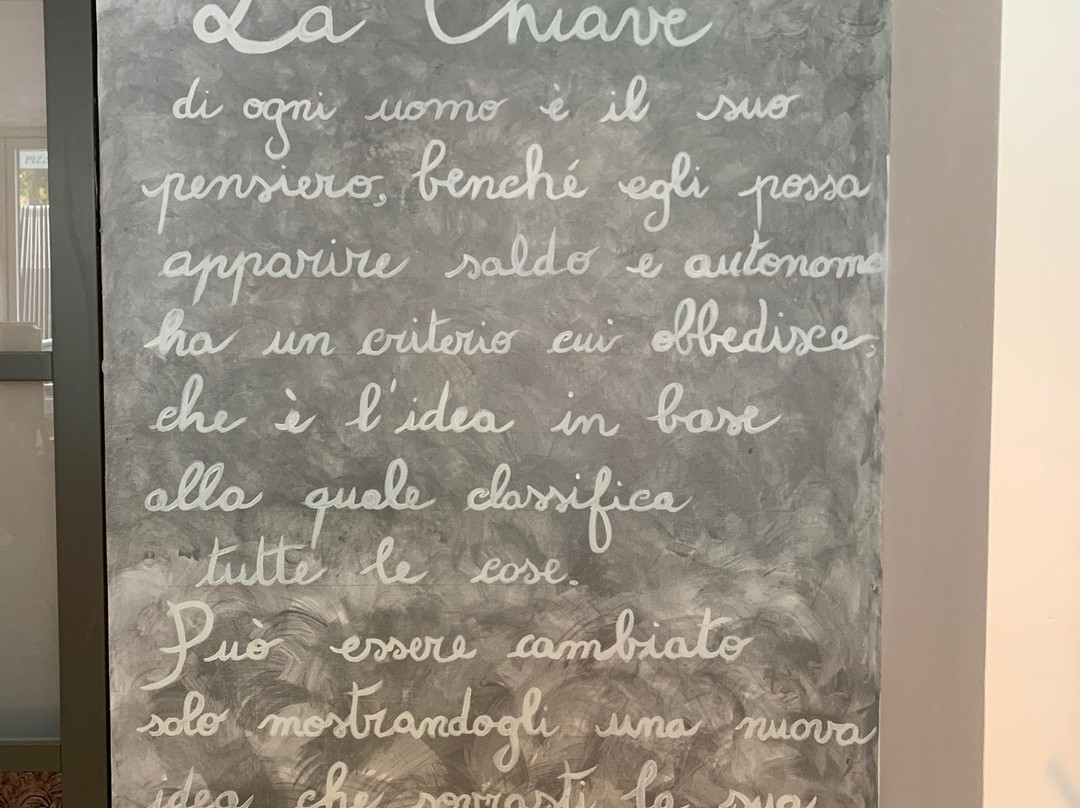 La Chiave
di ogni uomo è il suo
pensiero, benché egli possa
apparire saldo e autonomo
ha un criterio cui obbedisce,
che è l'idea in base
alla quale classifica
tutte le cose.
Può essere cambiato
solo mostrandogli una nuova
idea che sovrasti la sua